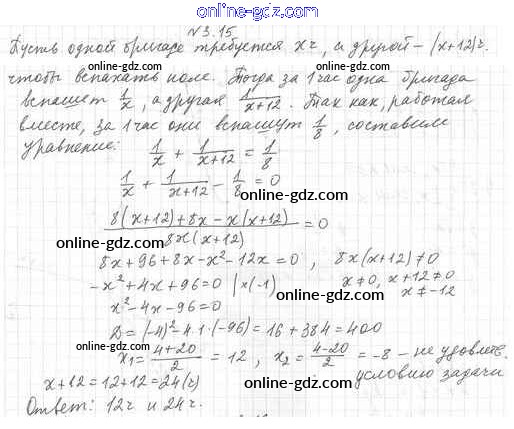 online-gdz.com
№3.15
Пусть одной бригаде требуется x ч, а другой – (x+12) ч.
online-gdz.com
чтобы вспахать поле. Тогда за 1 час одна бригада
вспашет 1/x, а другая 1/(x+12). Так как, работая
online-gdz.com
вместе, за 1 час они вспашут 1/8, составим
уравнение: 1/x + 1/(x+12) = 1/8
online-gdz.com
1/x + 1/(x+12) - 1/8 = 0
online-gdz.com
(8(x+12)+8x-x(x+12))/(8x(x+12)) = 0
online-gdz.com online-gdz.com
8x+96+8x-x²-12x=0 , 8x(x+12)≠0
-x²+4x+96=0 |x(-1) x≠0, x+12≠0
x²-4x-96=0 x≠-12
online-gdz.com online-gdz.com
D=(-4)²-4·1·(-96)=16+384=400
x₁=(4+20)/2=12, x₂=(4-20)/2=-8 – не удовлетв.
online-gdz.com
x+12=12+12=24(ч) условию задачи
online-gdz.com
Ответ: 12ч и 24ч.
online-gdz.com